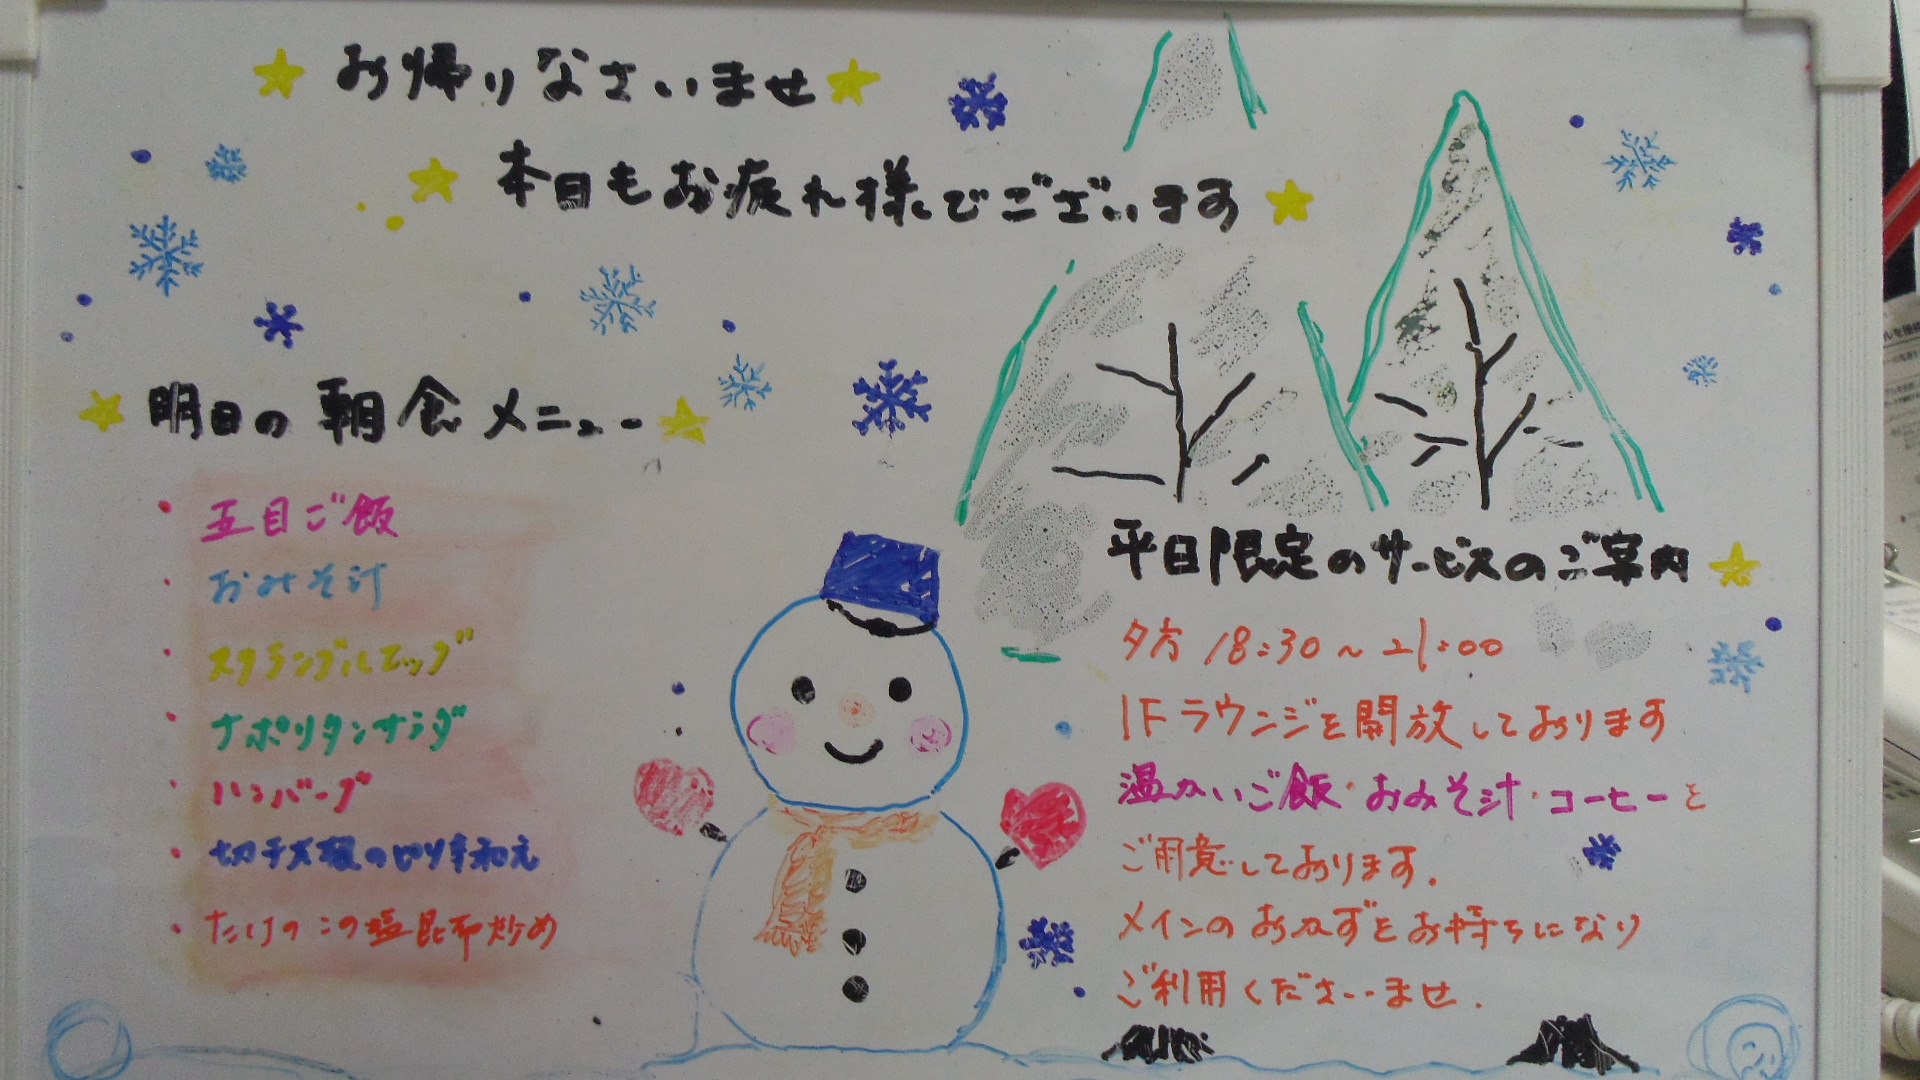 お帰りなさいませ
本日もお疲れ様でございます
明日の朝食メニュー
・五目ご飯
・おみそ汁
・スクランブルエッグ
・ナポリタンサラダ
・ハンバーグ
・切干大根のピリ辛和え
・たけのこの塩昆布炒め
平日限定のサービスのご案内
夕方 18:30～21:00
1Fラウンジを開放しております
温かいご飯・おみそ汁・コーヒーを
ご用意しております。
メインのおかずをお持ちになり
ご利用くださいませ.